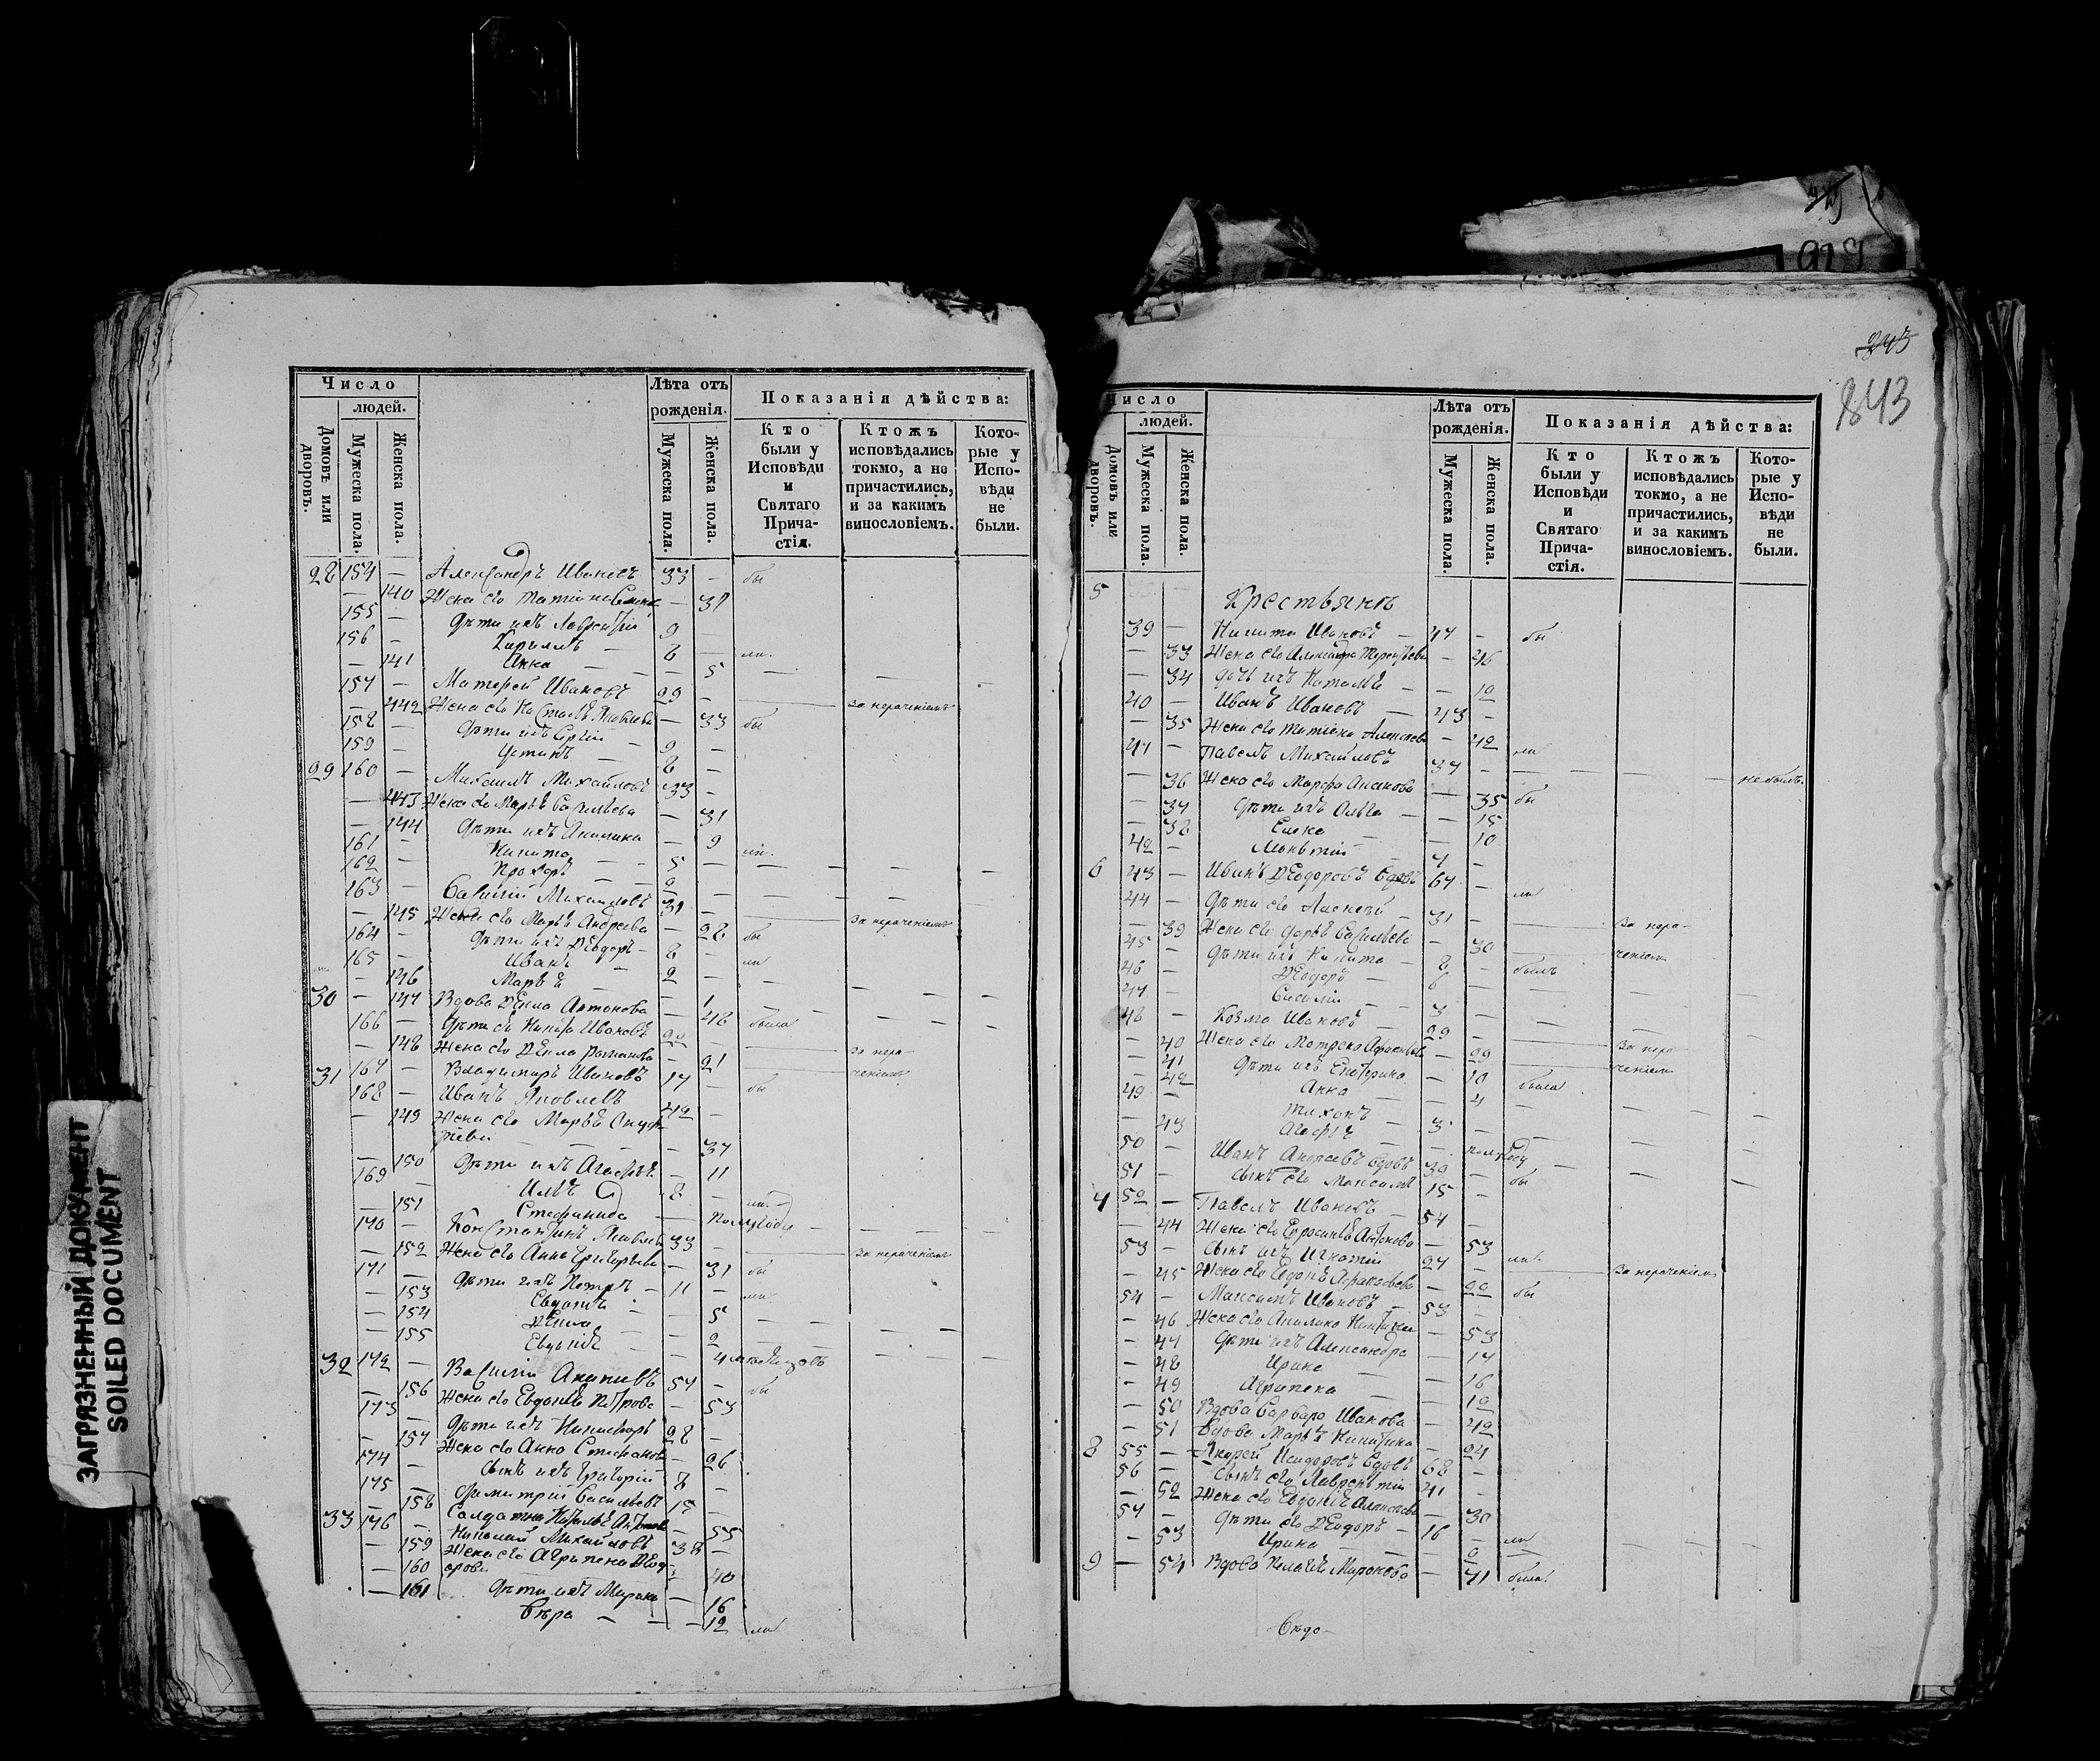 843
ЗАГРЯЗНЕННЫЙ ДОКУМЕНТ
SOILED DOCUMENT
Число
людей.
Домовъ или дворовъ.
Мужеска пола.
Женска пола.
Лѣта отъ рожденія.
Мужеска пола.
Женска пола.
Показанія дѣйства:
Кто были у Исповѣди и Святаго Причастія.
Ктожъ исповѣдались токмо, а не причастились, и за какимъ винословіемъ.
Которые у Исповѣди не были.
28 154 — Александръ Ивановъ 33 — бы
— 140 Жена его Татіана 31
155 — Дѣти ихъ Лаврентій 9 —
156 — Кириллъ — 8 — ли.
— 141 Анна — 5
157 — Матѳей Ивановъ 29 — за нераченіемъ
— 142 Жена его Наталья Яковлева — 33 бы
158 — Дѣти ихъ Сергій 9 —
159 — Устинъ 8 —
29 160 — Максимъ Михайловъ 33 —
— 143 Жена его Марья Васильева — 31
— 144 Дѣти ихъ Акилина — 9 ли.
161 — Никита — 5 —
162 — Прохоръ — 2
163 — Василій Михайловъ 31 — за нераченіемъ
— 145 Жена его Марья Андреева — 28 бы
164 — Дѣти ихъ Ѳеодоръ 8 — ли
165 — Иванъ — 2 —
— 146 Марья — 1
30 — 147 Вдова Ѳекла Антонова — 48 была
166 — Дѣти ея Никита Ивановъ 22 — за нера-
— 148 Жена его Ѳекла Романова — 21 ченіемъ
167 — Владимиръ Ивановъ 17 — бы
31 168 — Иванъ Яковлевъ 42 —
— 149 Жена его Марья Онуф-
ріева — 37
— 150 Дѣти ихъ Агафья — 11
169 — Илья 8 — ли.
— 151 Стефанида — полугоду
170 — Константинъ Яковлевъ 33 — за нераченіемъ
— 152 Жена его Анна Григорьева — 31 бы
171 — Дѣти ихъ Петръ — 11 — ли
— 153 Евдокія — 5
— 154 Ѳекла — 2
— 155 Евдокія —
32 172 — Василій Акимовъ 54 — бы
— 156 Жена его Евдокія Петрова — 53
173 — Дѣти ихъ Никифоръ 28 —
— 157 Жена его Анна Стефанова — 26
174 — Сынъ ихъ Григорій 8 —
175 — Димитрій Васильевъ 15 —
— 158 Солдатка Наталья — 55
33 176 — Николай Михайловъ 38 —
— 159 Жена его Агрипена Ѳеод-
орова — 40
— 160 Дѣти ихъ Марина — 16
— 161 Вѣра — — 12 ли.
843
Число
людей.
Домовъ или дворовъ.
Мужеска пола.
Женска пола.
Лѣта отъ рожденія.
Мужеска пола.
Женска пола.
Показанія дѣйства:
Кто были у Исповѣди и Святаго Причастія.
Ктожъ исповѣдались токмо, а не причастились, и за какимъ винословіемъ.
Которые у Исповѣди не были.
5 Крестьянъ
39 — Никита Ивановъ — 47 — бы
— 33 Жена его Александра Терентьева — 46
— 34 Дочь ихъ Наталья — — 12
40 — Иванъ Ивановъ — 43 —
— 35 Жена его Татіана Алексѣева — 42 ли
41 — Павелъ Михайловъ 37 — небылъ.
— 36 Жена его Марфа — 35 бы
— 37 Дѣти ихъ Ольга — — 15
— 38 Елена — 10
42 — 7 —
6 43 — Иванъ Ѳеодоровъ вдовъ 67 — ли
44 — Дѣти его Алексѣй — 31 — за нера-
— 39 Жена его Дарья Васильева — 30 ченіем
45 — Дѣти ихъ Никита — 8 — былъ
46 — Ѳеодоръ — 6 —
47 — Василій — 3
48 — Козма Ивановъ — 29 — за нера-
— 40 Жена его Матрена — 29 ченіем
— 41 Дѣти ихъ Екатерина — 10 была
— 42 Анна — — 4
49 — Тихонъ — 3 —
— 43 Агафья — полугоду
50 — Иванъ Андреевъ вдовъ 39 — бы
51 — Сынъ его Максимъ 15 —
7 52 — Павелъ Ивановъ — 54 —
— 44 Жена его Ефросинья Антонова — 53
53 — Сынъ ихъ Игнатій 27 — ли. за нераченіем
— 45 Жена его Евдокія — 22 бы
54 — Максимъ Ивановъ — 53 —
— 46 Жена его Акилина Никитина — 53
— 47 Дѣти ихъ Александра — 17
— 48 Ирина — 16
— 49 Агрипена — 12
— 50 Вдова Варвара Иванова — 42
— 51 Вдова Марья Никитина — 24
8 55 — Андрей Исидоровъ вдовъ 68 —
56 — Сынъ его Лаврентій 41 —
— 52 Жена его Евдокія Алексѣева — 30
57 — Дѣти его Ѳеодоръ — 16 — ли
— 53 Ирина — 2
9 — 54 Вдова Пелагія Миронова — 71 была.